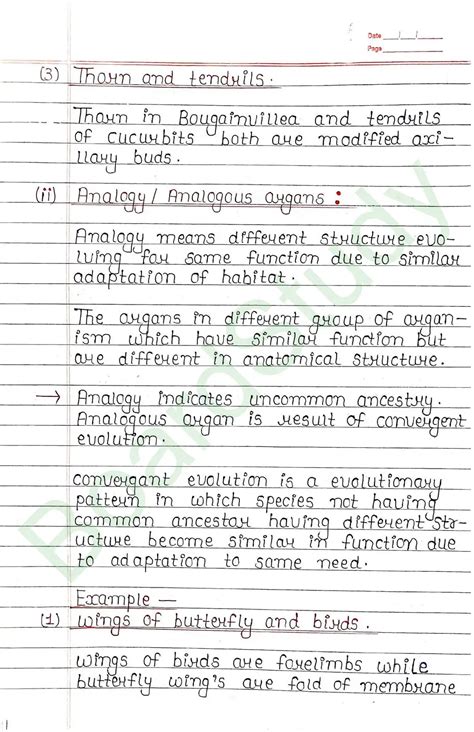 Date __/__/__
Page
(3) Thorn and tendrils.
Thorn in Bougainvillea and tendrils
of cucurbits both are modified axi-
llary buds.
(ii) Analogy / Analogous organs :
Analogy means different structure evo-
lving for same function due to similar
adaptation of habitat.
The organs in different group of organ-
ism which have similar function but
are different in anatomical structure.
→ Analogy indicates uncommon ancestry.
Analogous organ is result of convergent
evolution.
convergant evolution is a evolutionary
pattern in which species not having
common ancestor having different str-
ucture become similar in function due
to adaptation to same need.
Example —
(1) wings of butterfly and birds.
wings of birds are forelimbs while
butterfly wing's are fold of membrane
BoardStudy